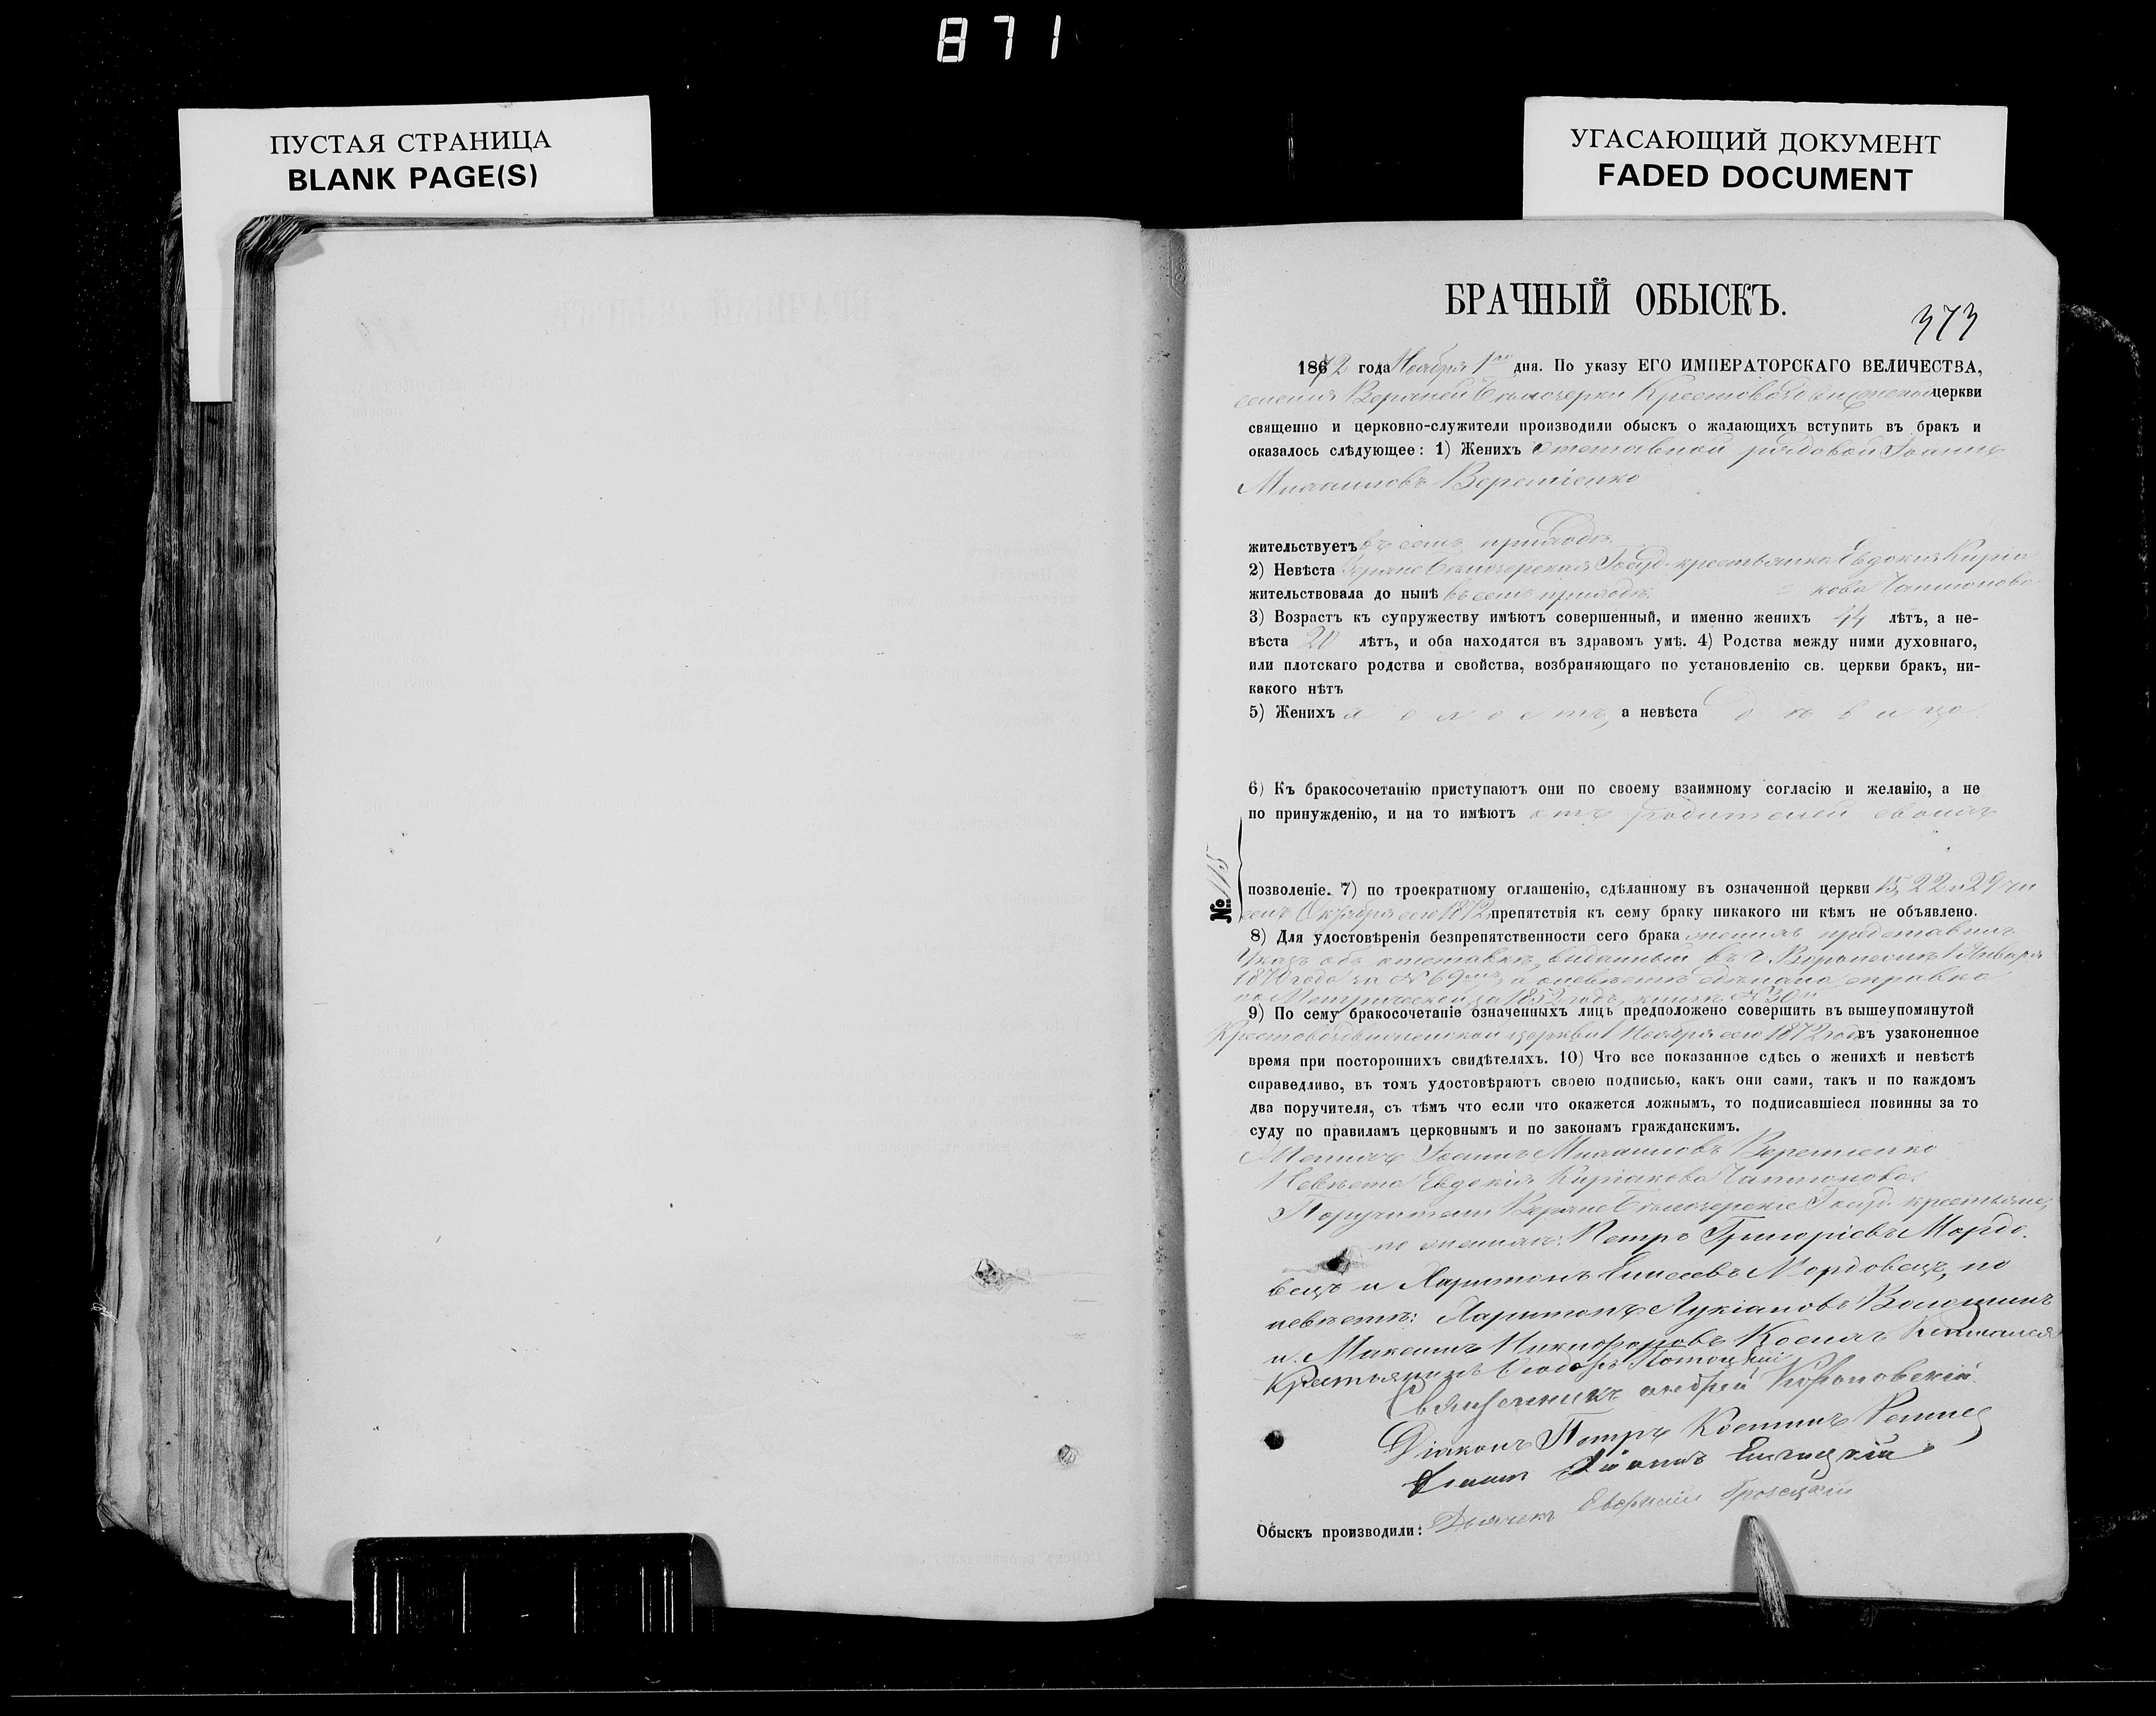 871
ПУСТАЯ СТРАНИЦА
BLANK PAGE(S)
УГАСАЮЩИЙ ДОКУМЕНТ
FADED DOCUMENT
БРАЧНЫЙ ОБЫСКЪ.
373
1872 года Ноября 1го дня. По указу ЕГО ИМПЕРАТОРСКАГО ВЕЛИЧЕСТВА,
селения Верхней Бѣлозерки церкви
священно и церковно-служители производили обыскъ о жалающихъ вступить въ бракъ и
оказалось слѣдующее: 1) Женихъ отставной рядовой Іоаннъ
Михаиловъ
жительствуетъ въ семъ приходѣ
2) Невѣста Верхне Бѣлозерская Госуд. крестьянка Евдокія Кирiа
жительствовала до нынѣ въ семъ приходѣ. = кова
3) Возрастъ къ супружеству имѣютъ совершенный, и именно женихъ 44 лѣтъ, а не-
вѣста 20 лѣтъ, и оба находятся въ здравомъ умѣ. 4) Родства между ними духовнаго,
или плотскаго родства и свойства, возбраняющаго по установленію св. церкви бракъ, ни-
какого нѣтъ
5) Женихъ холостъ, а невѣста дѣвица
6) Къ бракосочетанію приступаютъ они по своему взаимному согласію и желанію, а не
по принужденію, и на то имѣютъ отъ родителей своихъ
№ 115
позволеніе. 7) по троекратному оглашенію, сдѣланному въ означенной церкви 15, 22 и 29 чи
селъ Октября сего 1872 препятствія къ сему браку никакого ни кѣмъ не объявлено.
8) Для удостовѣренія безпрепятственности сего брака женихъ представилъ
Указъ объ отставкѣ, виданный въ г. 1 Января
1870 года за № 69, а о невѣстѣ сдѣлана справка
по Метрической за 1852 годъ, книгѣ № 30
9) По сему бракосочетаніе означенныхъ лицъ предположено совершить въ вышеупомянутой
Крестовоздвиженской церкви 1 Ноября сего 1872 года въ узаконенное
время при постороннихъ свидѣтеляхъ. 10) Что все показанное сдѣсь о женихѣ и невѣстѣ
справедливо, въ томъ удостовѣряютъ своею подписью, какъ они сами, такъ и по каждомъ
два поручителя, съ тѣмъ что если что окажется ложнымъ, то подписавшіеся повинны за то
суду по правиламъ церковнымъ и по законамъ гражданскимъ.
Женихъ Іоаннъ Михаиловъ
Невѣста Евдокія Киріакова
Поручители Верхне Бѣлозерскіе Госуд. крестьяне,
по женихѣ: Петръ Григоріевъ Мордо.
вецъ и Харитонъ Елисеевъ Мордовецъ, по
невѣстѣ: Харитонъ Лукіановъ Волошинъ
и Максимъ Никифоровъ
Крестьянинъ
Священникъ Андрей
Діаконъ Петръ Костинъ
Іоаннъ
Дьячекъ
Обыскъ производили: